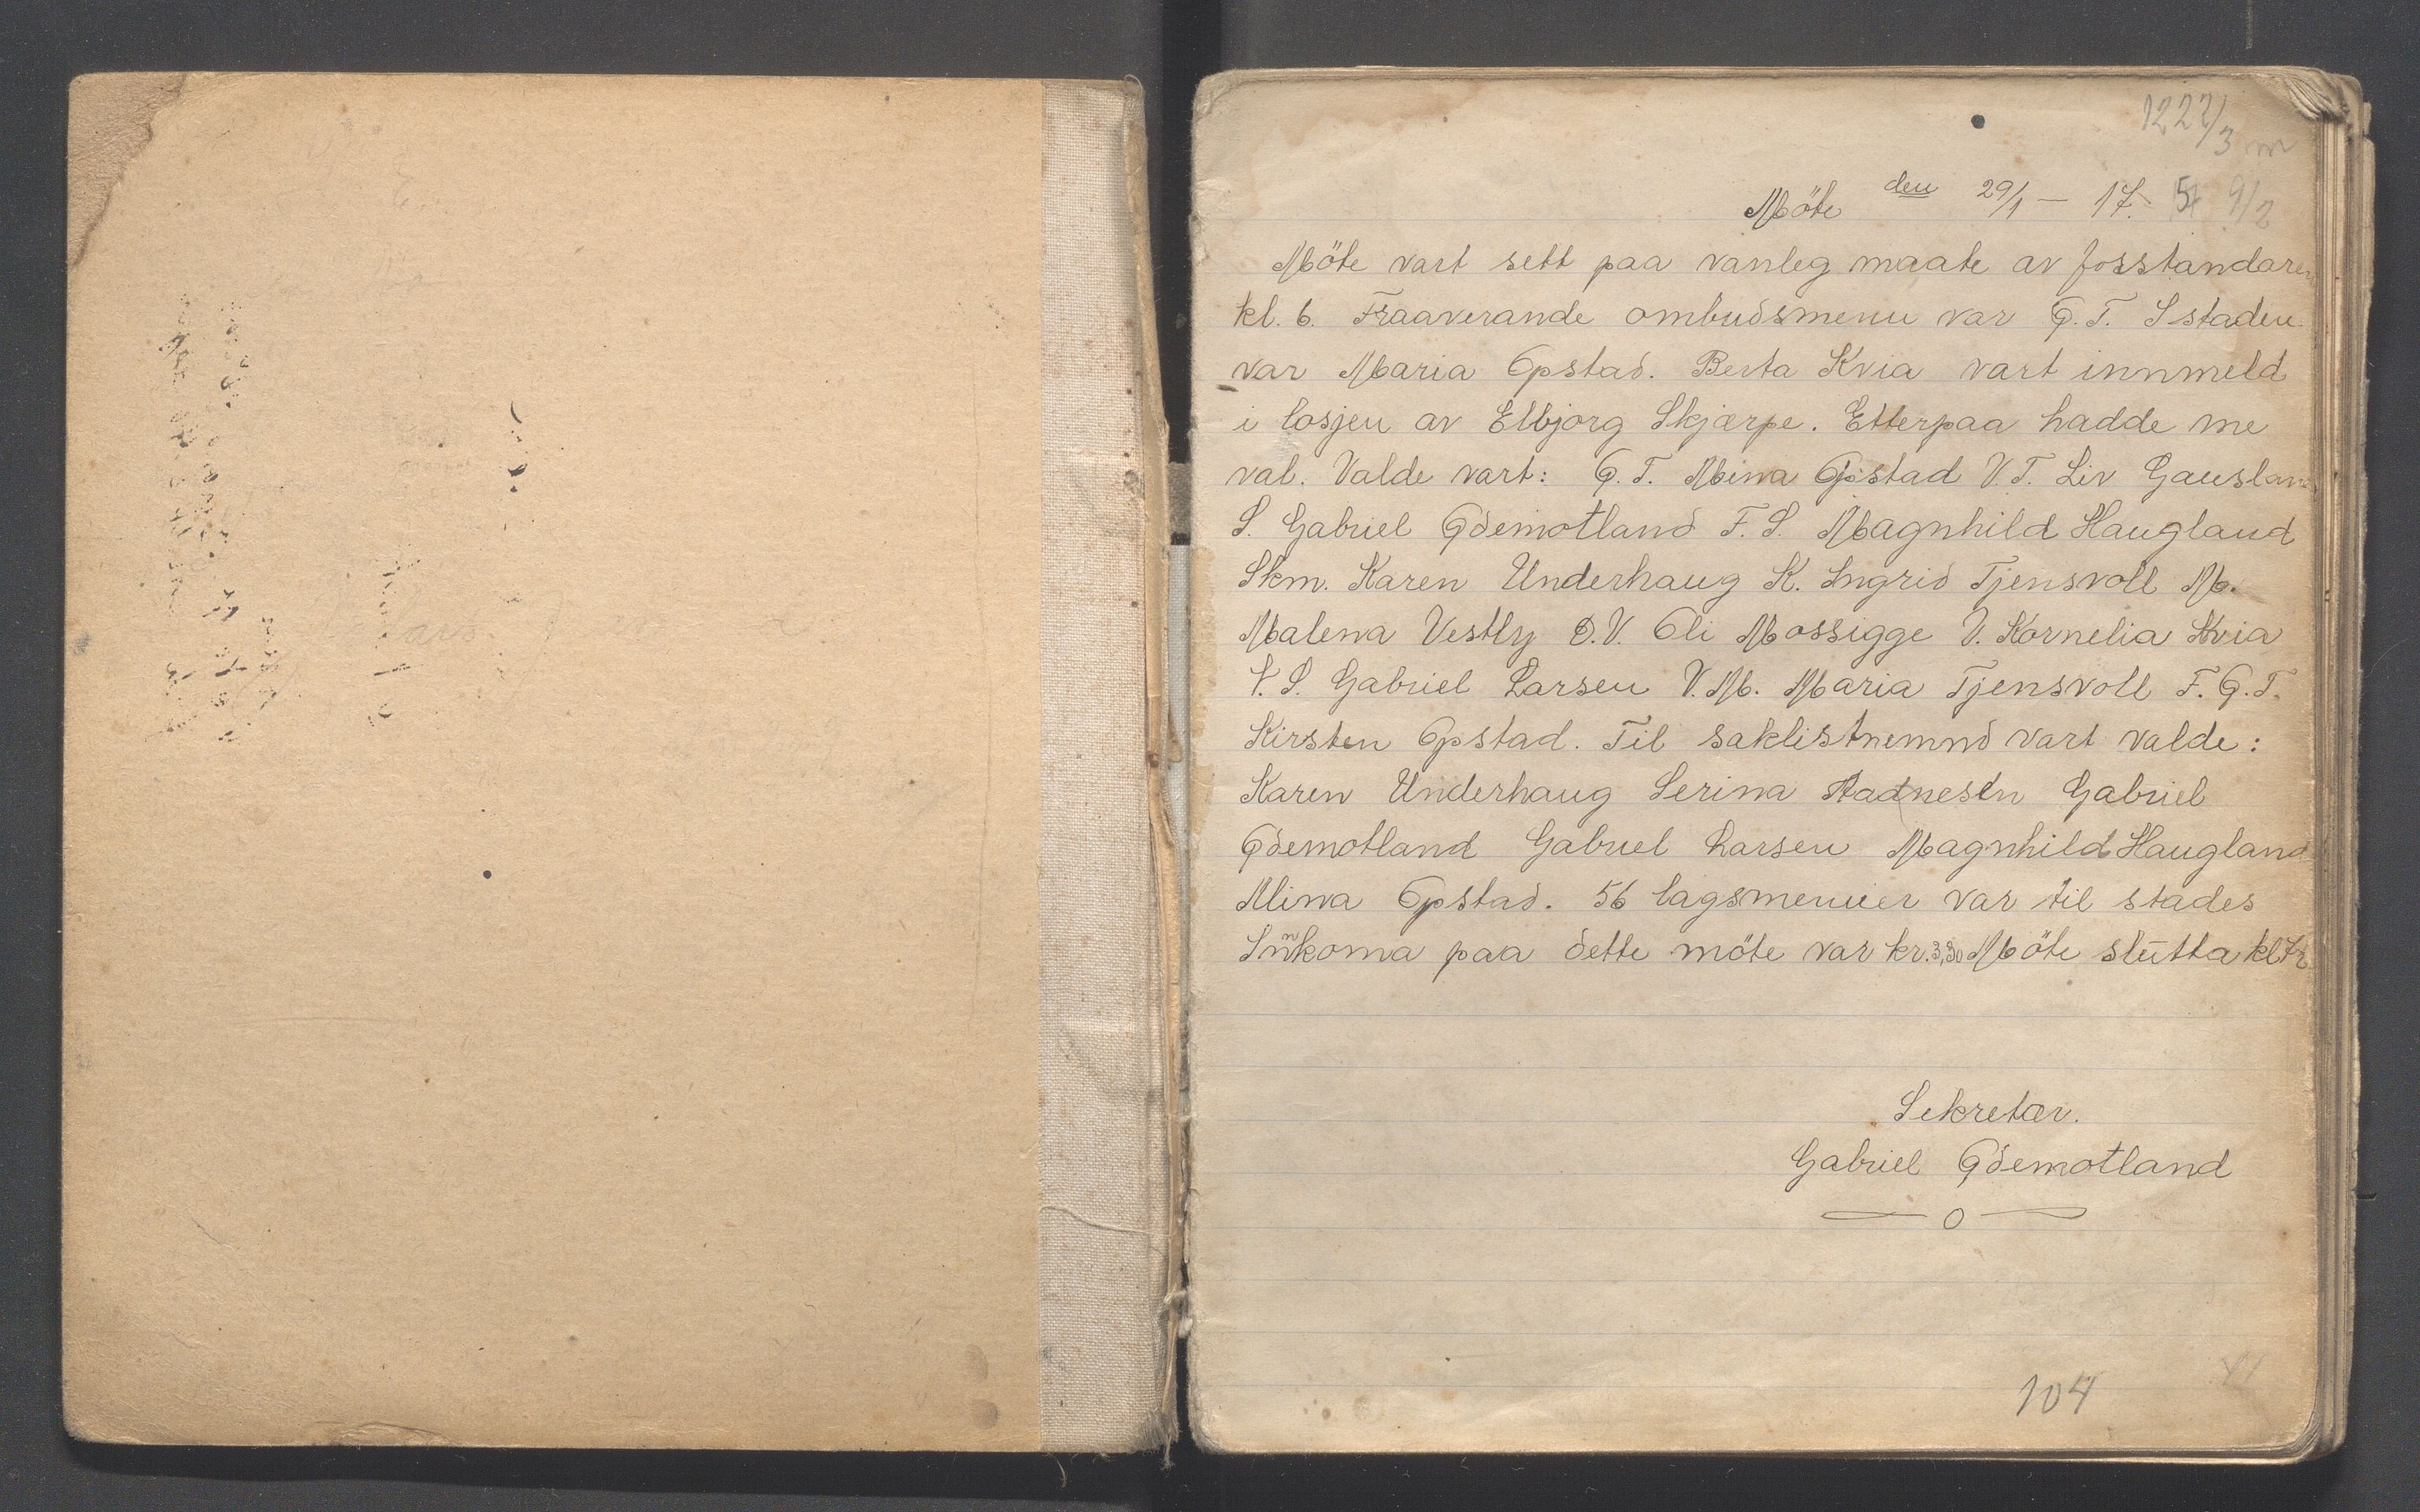 1222/3
Möte den 29/1 – 17. 9/2
Möte vart sett paa vanleg maate av forstandaren
kl. 6. Fraaverande ombudsmenn var Ø.T. I staden
var Maria Opstad. Berta Kvia vart innmeld
i losjen av Elbjorg Skjærpe. Etterpaa hadde me
val. Valde vart: Ø.T. Mina Opstad V.T. Liv Gausland
S. Gabriel Ødemotland F.S. Magnhild Haugland
Skm. Karen Underhaug K. Ingrid Tjensvoll M.
Malena Vestly D.V. Oli Mossigge V. Kornelia Kvia
V.S. Gabriel Larsen V.M. Maria Tjensvoll F.Ø.T.
Kirsten Opstad. Til saklistnemnd vart valde:
Karen Underhaug Serina Aadnesen Gabriel
Ødemotland Gabriel Larsen Magnhild Haugland
Mina Opstad. 56 lagsmenner var til stades
Innkoma paa dette möte var kr. 3,30 Möte slutta kl
Sekretær.
Gabriel Ødemotland
104